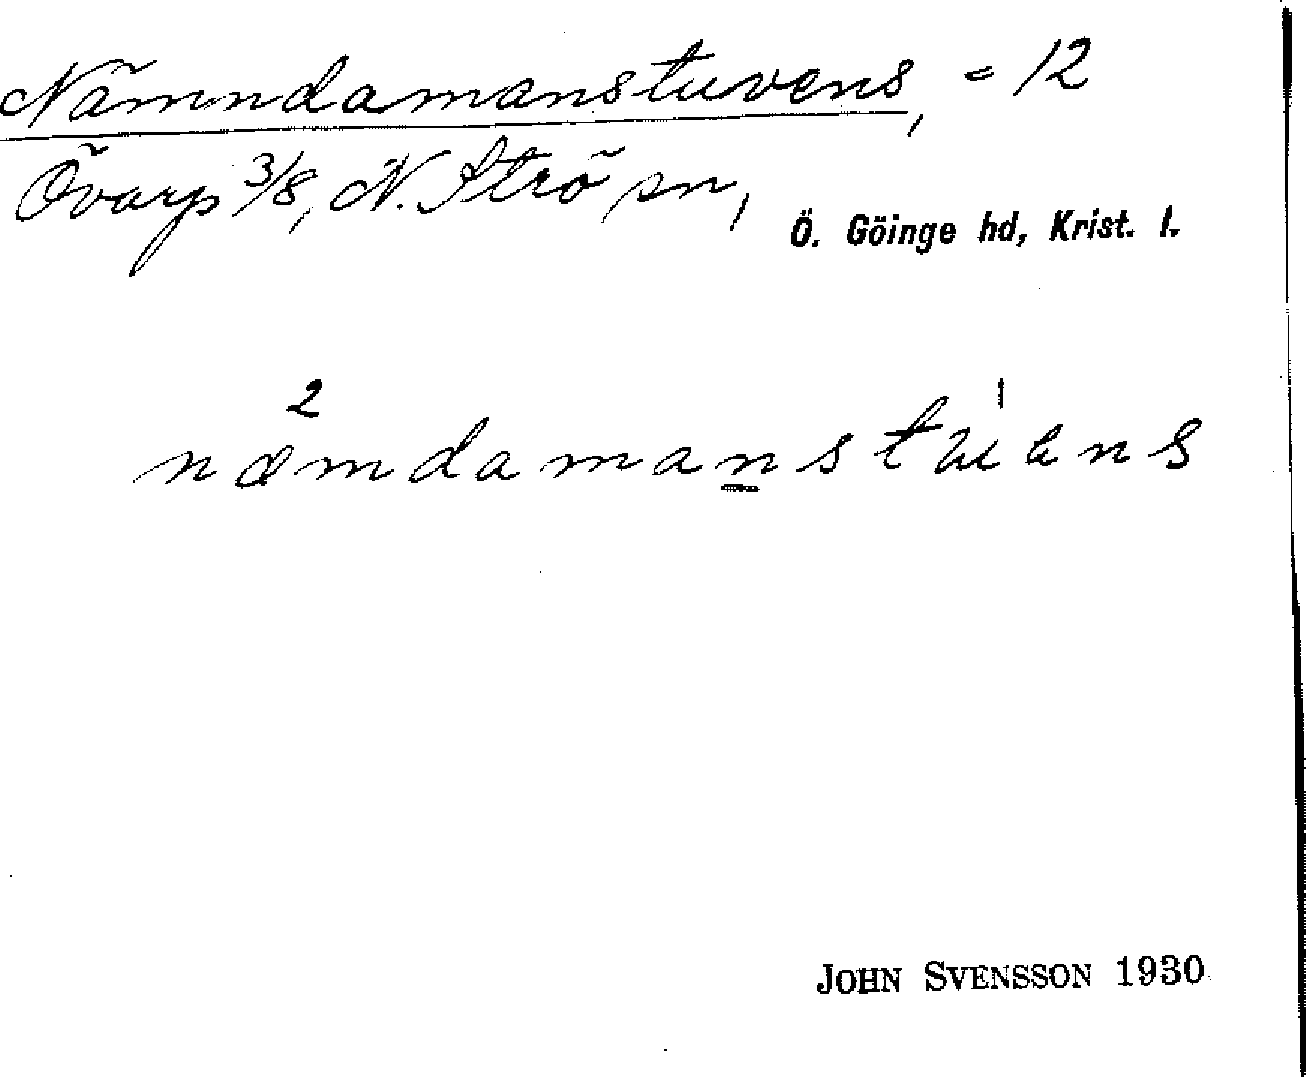 Nämndamanstuvens, = 12
Övarp 3/8, N. Strö sn,
Ö. Göinge hd, Krist. l.
næ²mdamanstu¹ens
JOHN SVENSSON 1930